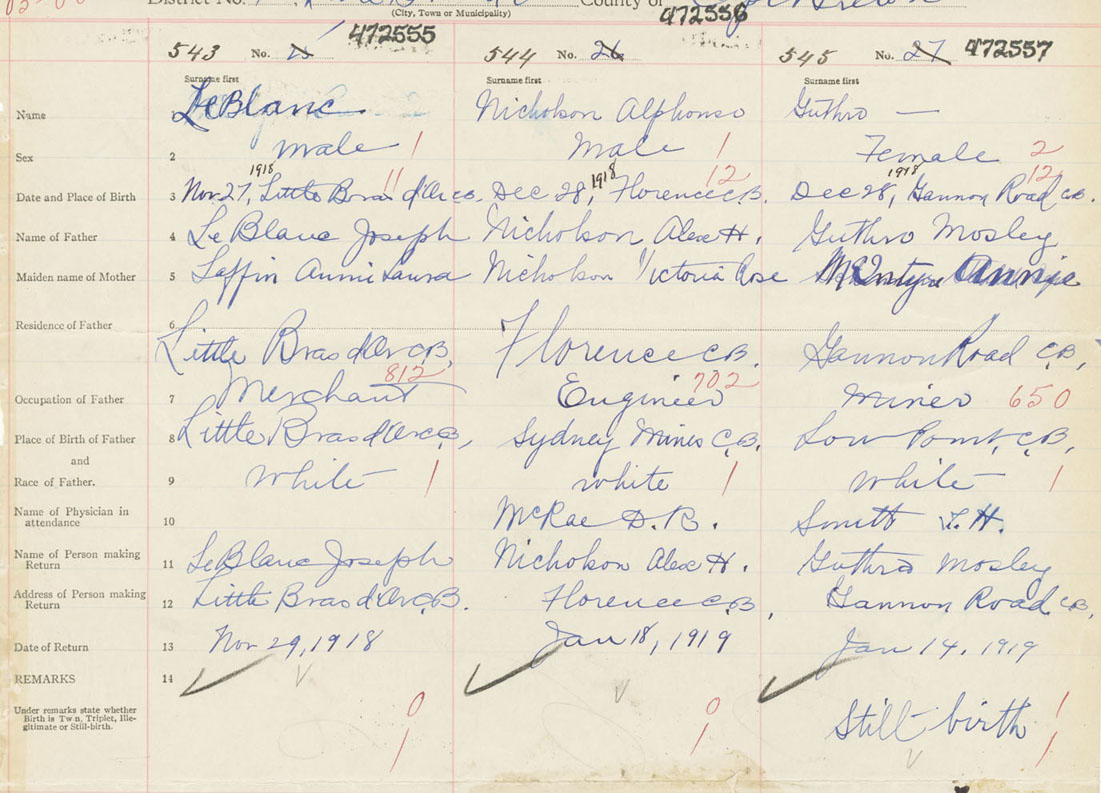 District No. County of
(City, Town or Municipality)
472555 472556 472557
543 No. 25 544 No. 26 545 No. 27
Surname first Surname first Surname first
Name 1 LeBlanc — Nicholson Alphonso Guthro —
Sex 2 male 1 Male 1 Female 2
1918 11 1918 12 1918 12
Date and Place of Birth 3 Nov. 27, Little Bras d'Or C.B. Dec 28, Florence C.B. Dec 28, Gannon Road C.B.
Name of Father 4 LeBlanc Joseph Nicholson Alex H. Guthro Mosley
Maiden name of Mother 5 Laffin Anni Laura Nicholson Victoria Rose McIntyre Annie
Residence of Father 6 Little Bras d'Or C.B. Florence C.B. Gannon Road C.B.,
812 702 650
Occupation of Father 7 Merchant Engineer Miner
Place of Birth of Father 8 Little Bras d'Or C.B., Sydney Mines C.B. Low Point, C.B.,
and
Race of Father. 9 White 1 white 1 White 1
Name of Physician in
attendance 10 McRae D. R. Smith H.
Name of Person making
Return 11 LeBlanc Joseph Nicholson Alex H. Guthro Mosley
Address of Person making
Return 12 Little Bras d'Or C.B. Florence C.B., Gannon Road C.B.,
Date of Return 13 Nov 29, 1918 Jan 18, 1919 Jan 14. 1919
REMARKS 14
Under remarks state whether
Birth is Twin, Triplet, Ille-
gitimate or Still-birth.
0 0 Still birth 1
1 1 1